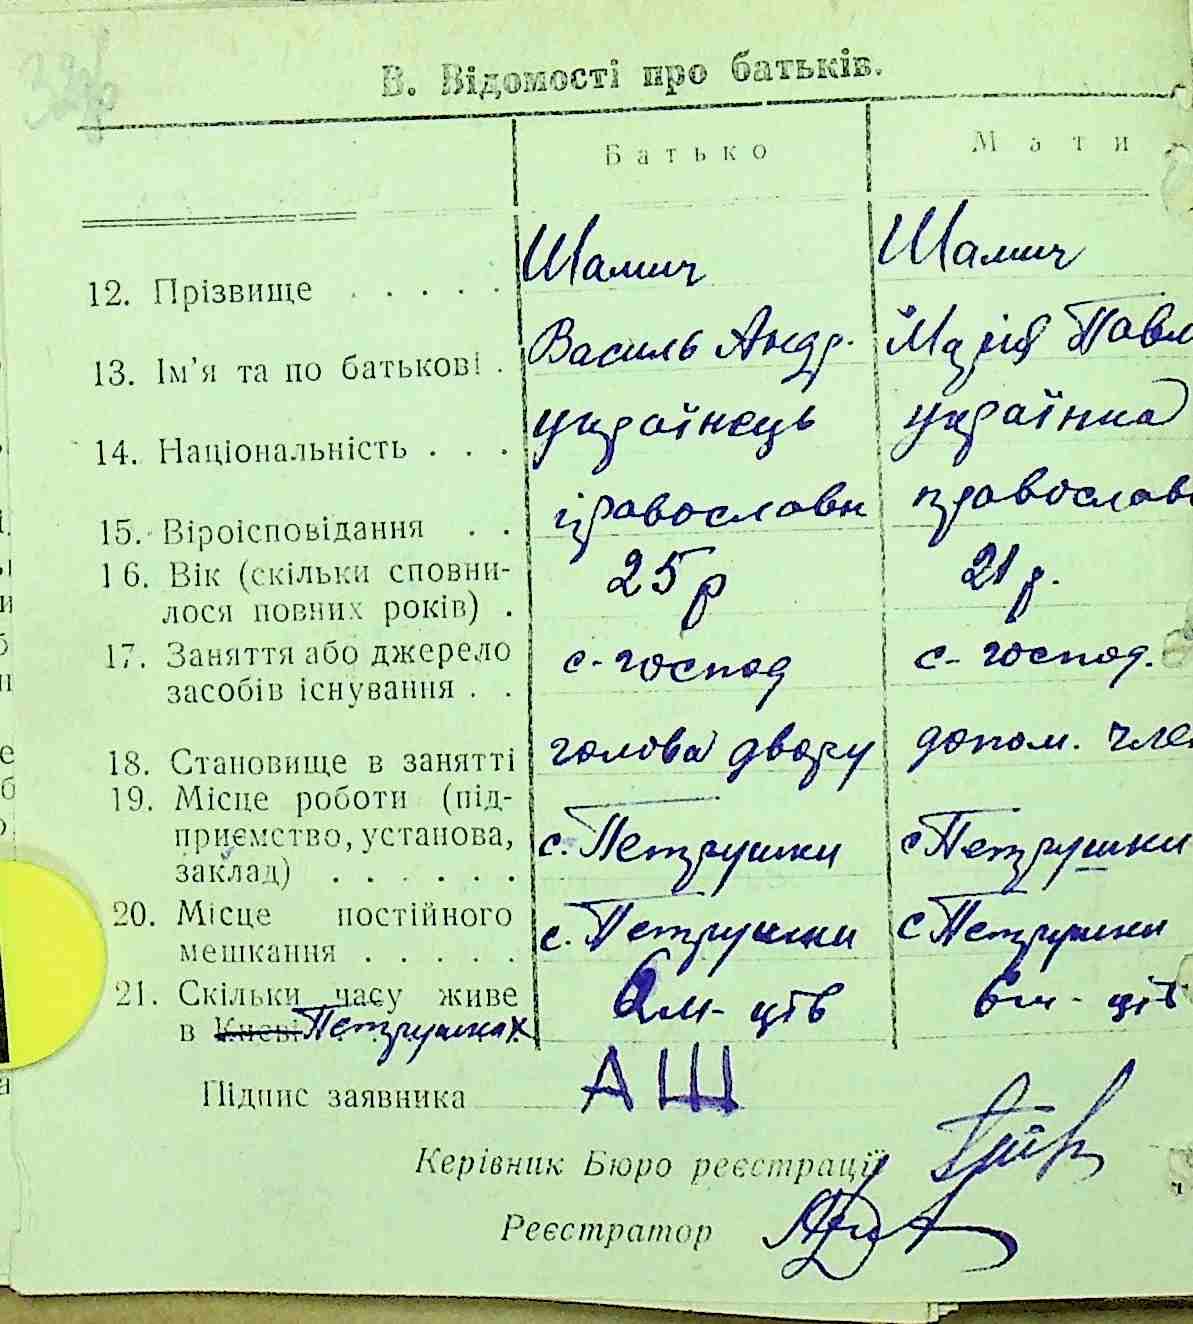 В. Відомості про батьків.
Батько Мати
12. Прізвище . . . . . Шамич Шамич
13. Ім'я та по батькові . Василь Андр. Марія Павл
14. Національність . . . українець українка
15. Віроісповідання . . православн православ
16. Вік (скільки сповни-
лося повних років) . 25 р 21 р.
17. Заняття або джерело
засобів існування . . с-господ с-господ.
18. Становище в занятті голова двору допом. чле
19. Місце роботи (під-
приємство, установа,
заклад) . . . . . . с. Петрушки с Петрушки
20. Місце постійного
мешкання . . . . . с. Петрушки с Петрушки
21. Скільки часу живе
в Києві Петрушках 6 м-ців 6 м-ців
Підпис заявника АШ
Керівник Бюро реєстрації
Реєстратор